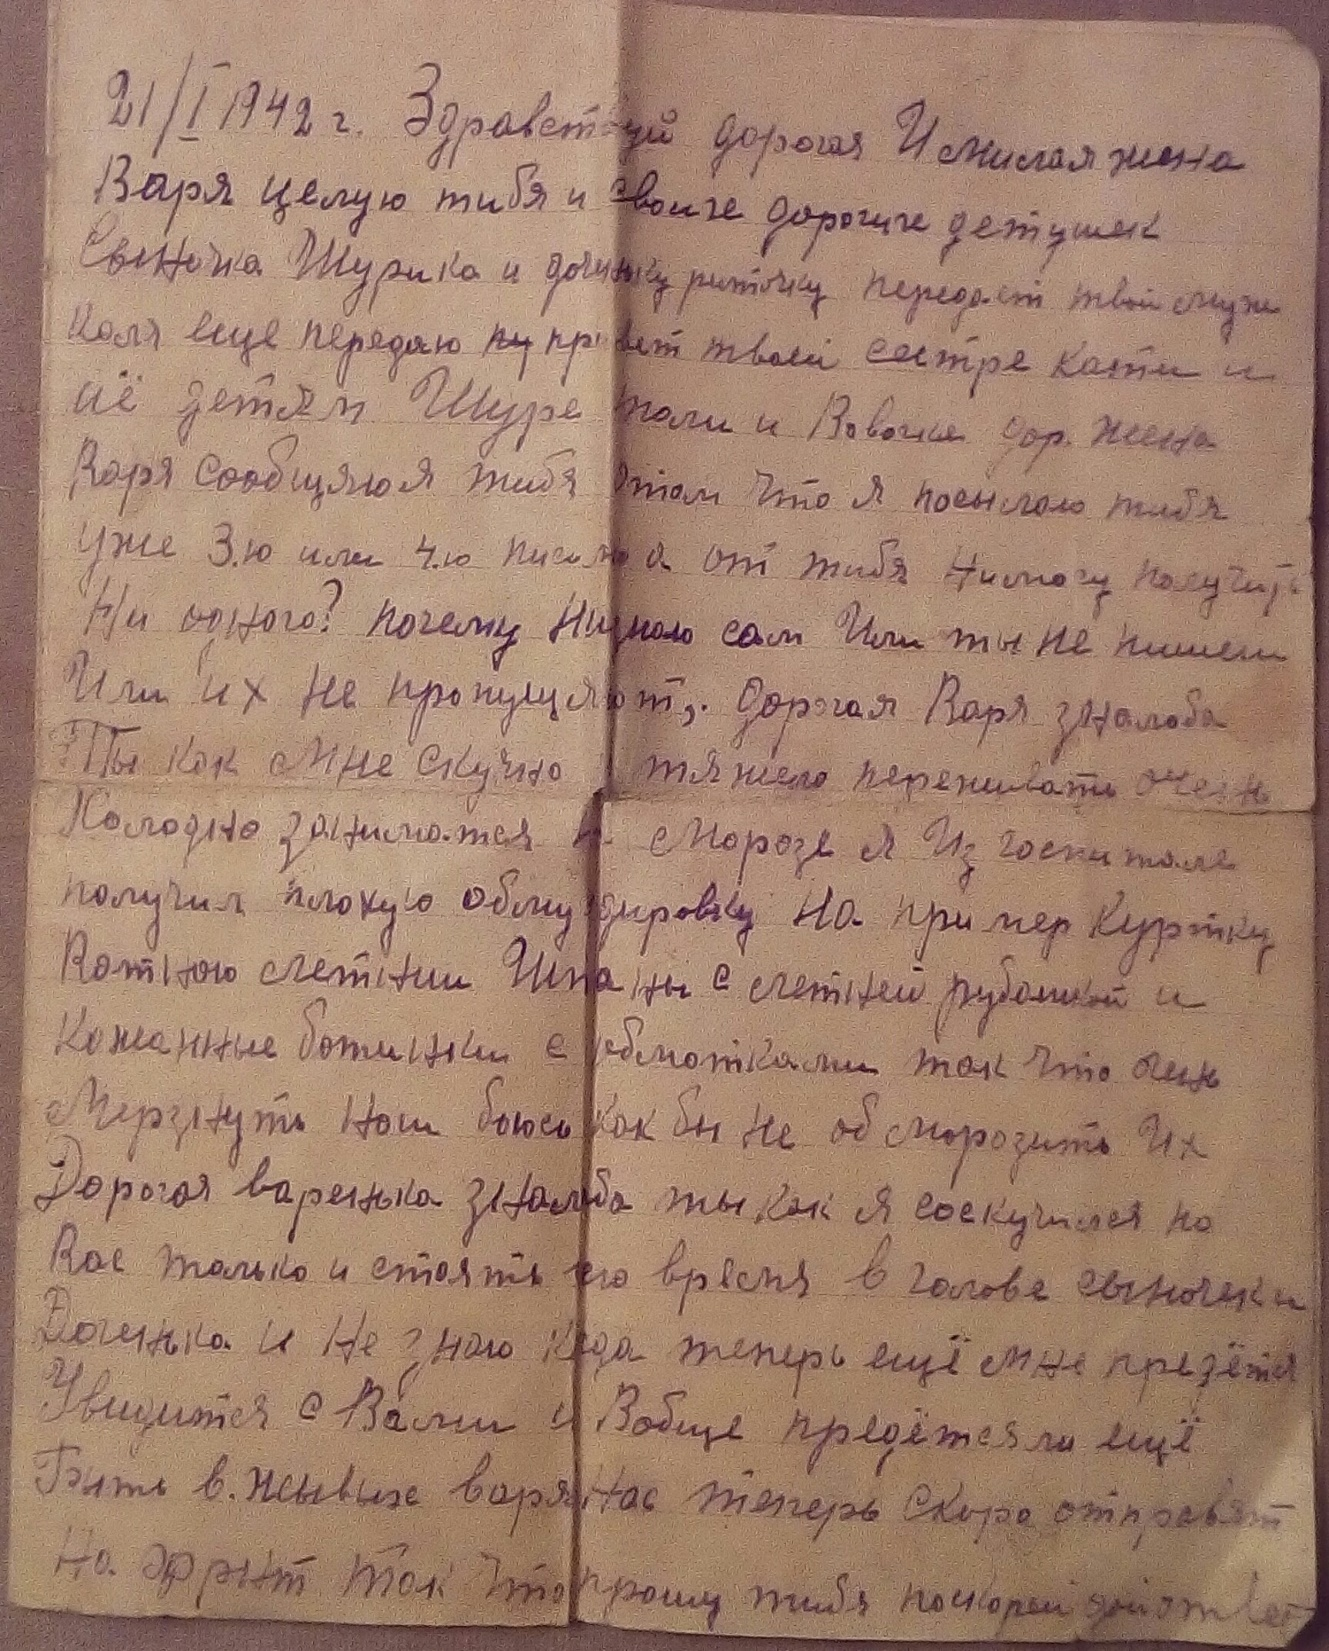 21/I 1942 г. Здравствуй дорогая И милая жена
Варя целую тибя и своихе дорогихе детушек
Сыночка Шурика и доченьку риточку передает твой муж
Коля еще передаю ну привет твоей сестре Кати и
иё детям Шуре толи и Вовочке дор. жена
Варя сообщяю я тибя отом что я посылаю тибя
уже 3.ю или 4.ю письмо а от тибя нимогу получить
Ни одного? почему низнаю сам Или ты не пишеш
Или их не пропущяют,. дорогая Варя зналаба
Ты как мне скучно и тяжело переживать очень
Холодно заниматся на морозе я Из госпиталя
получил плохую обмундировку на пример куртку
Ватною летнии Штаны с летней рубашкой и
кожанные ботинки с обмотками так что очень
Мерзнуть ноги боюсь как бы не обморозить Их
Дорогая варенька зналаба ты как я соскучился по
Вас только и стоять всо время в голове сыночек и
Доченька и не знаю когда теперь ещё мне презётся
Увидится с Вами и Вобще предётся ли ещё
Быть в. жывых варя Нас теперь скоро отправят
На фрынт так что прошу тибя поскорей дай ответ